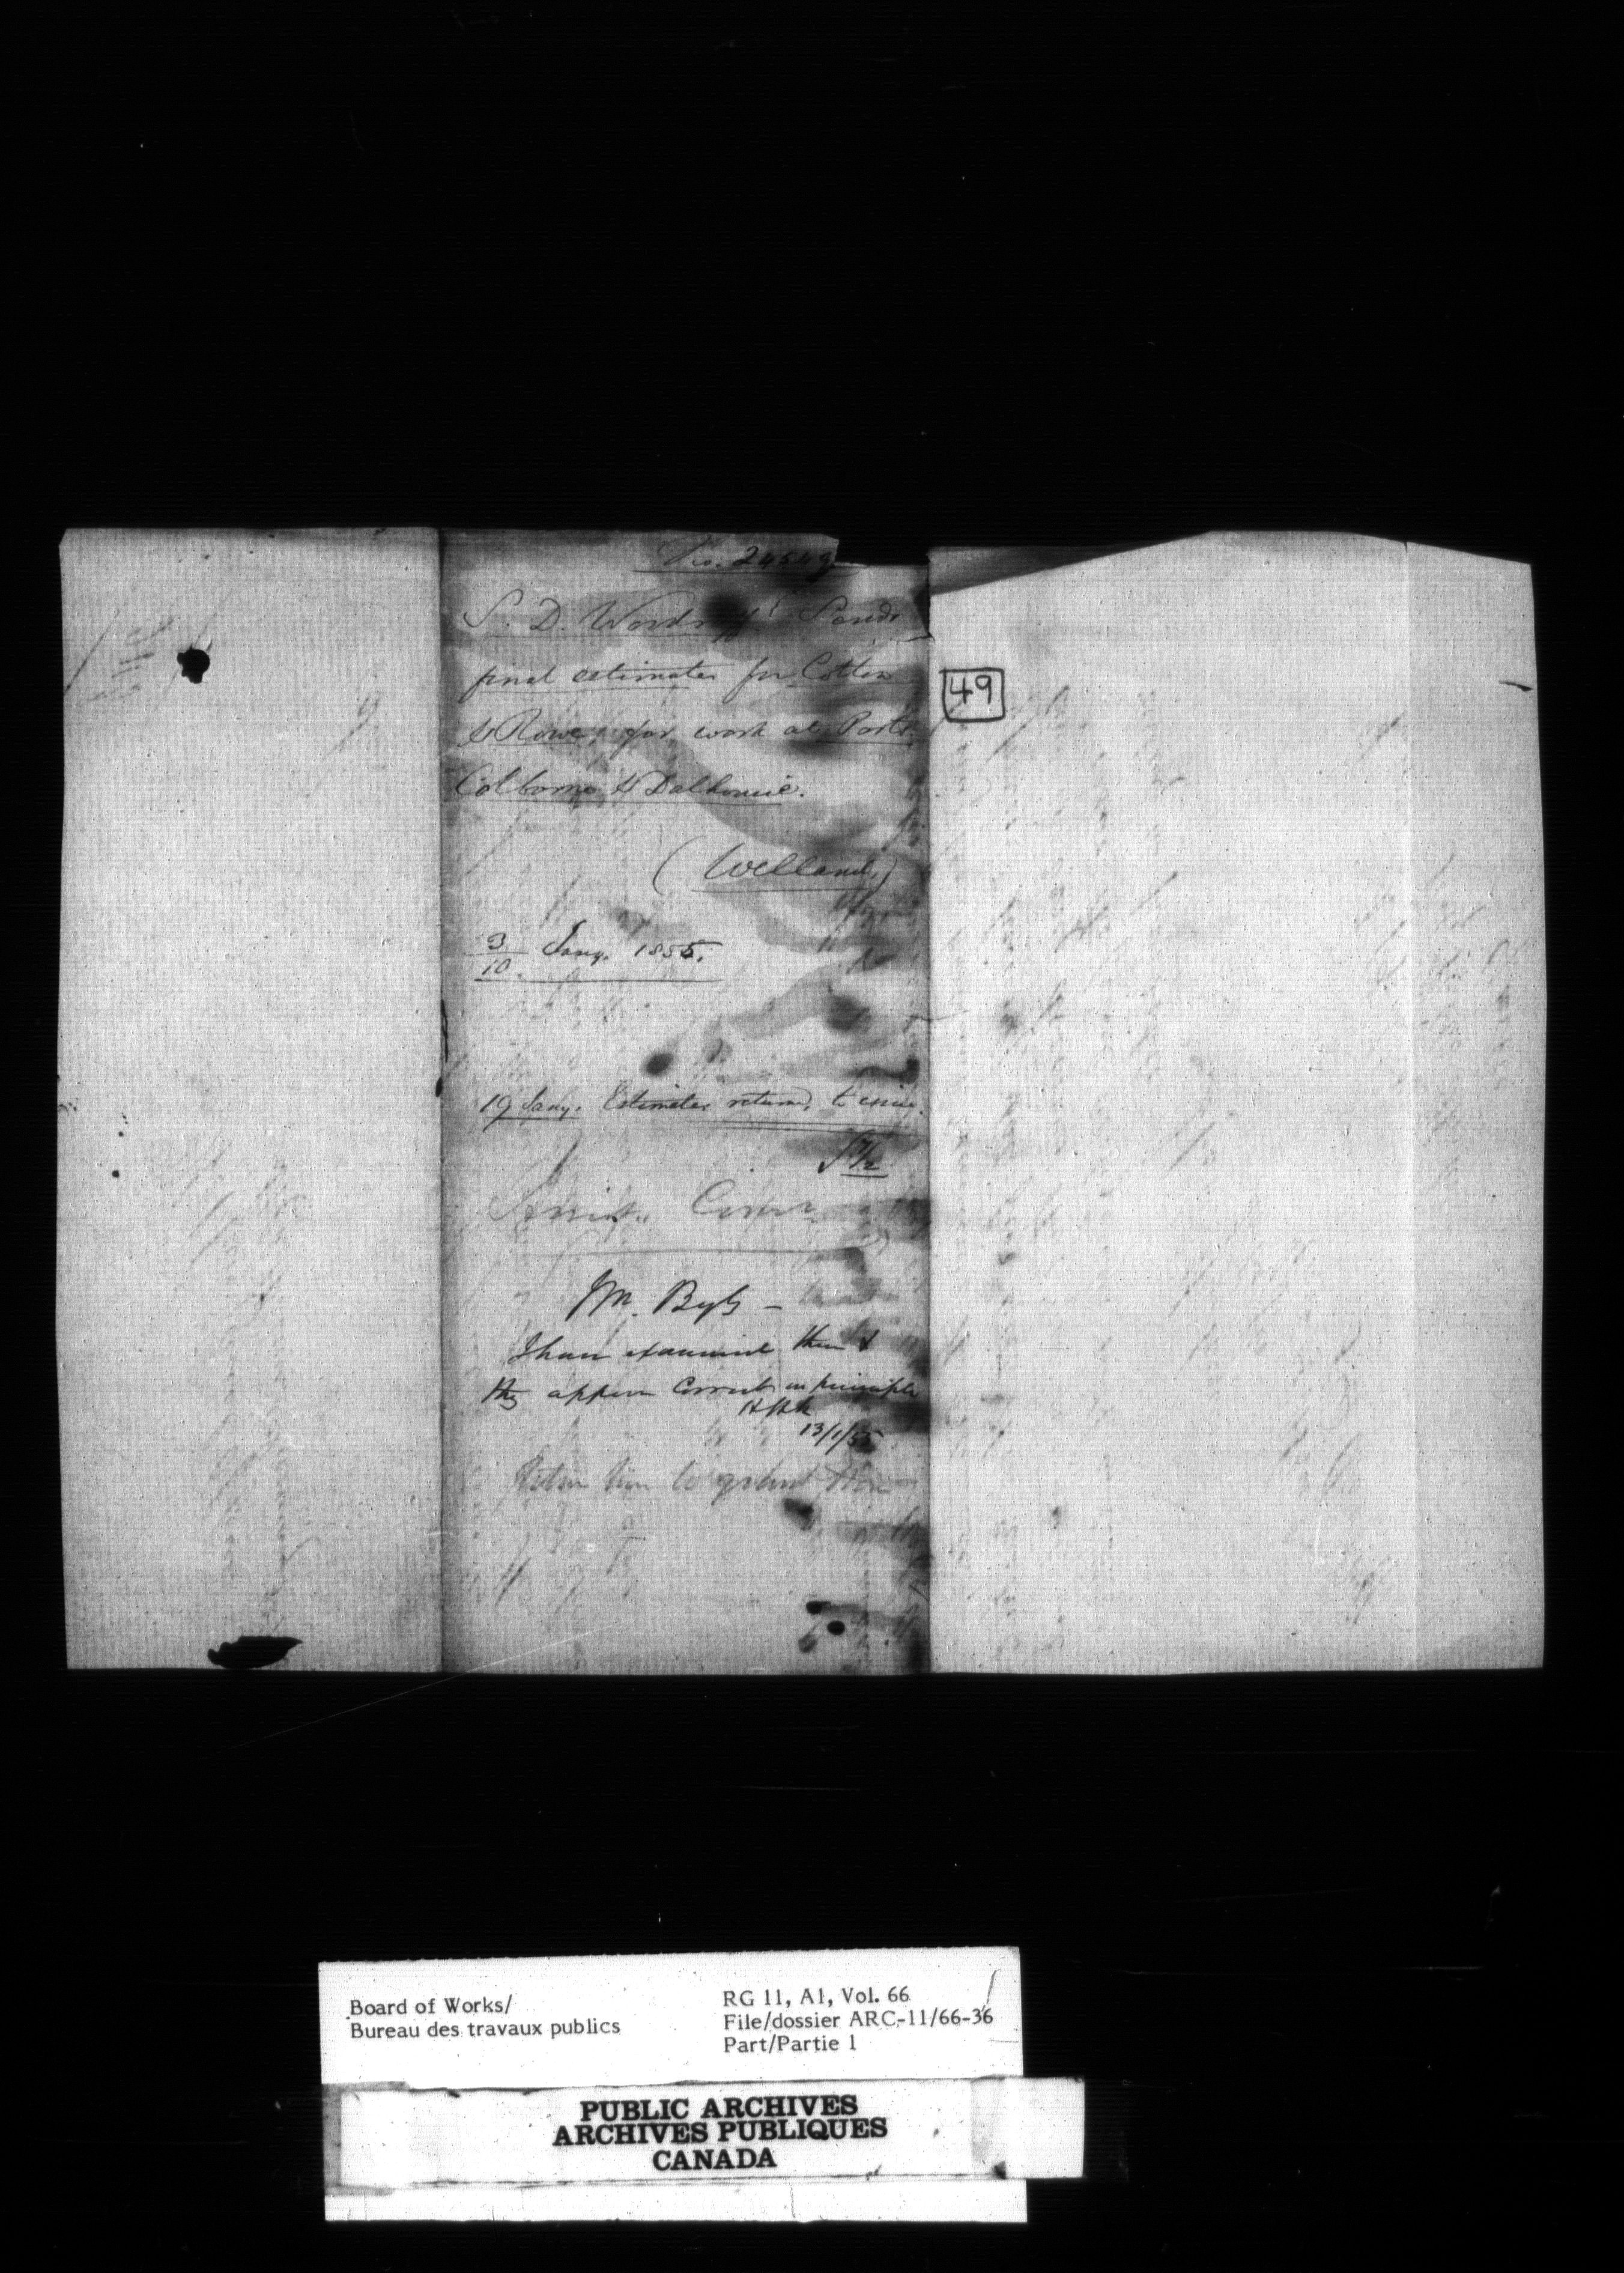 No. 24549
S. D. Woodruff Sends
final estimates for Cotton
& Rowe, for work at Ports
Colborne & Dalhousie.
(Welland,)
3/10 Jany. 1855.
19 Jany. Estimates returned, to
Mr. Begly –
I have examined them &
they appear Correct in principle
13/1/55
49
Board of Works/
Bureau des travaux publics
RG 11, A1, Vol. 66
File/dossier ARC-11/66-36
Part/Partie 1
PUBLIC ARCHIVES
ARCHIVES PUBLIQUES
CANADA